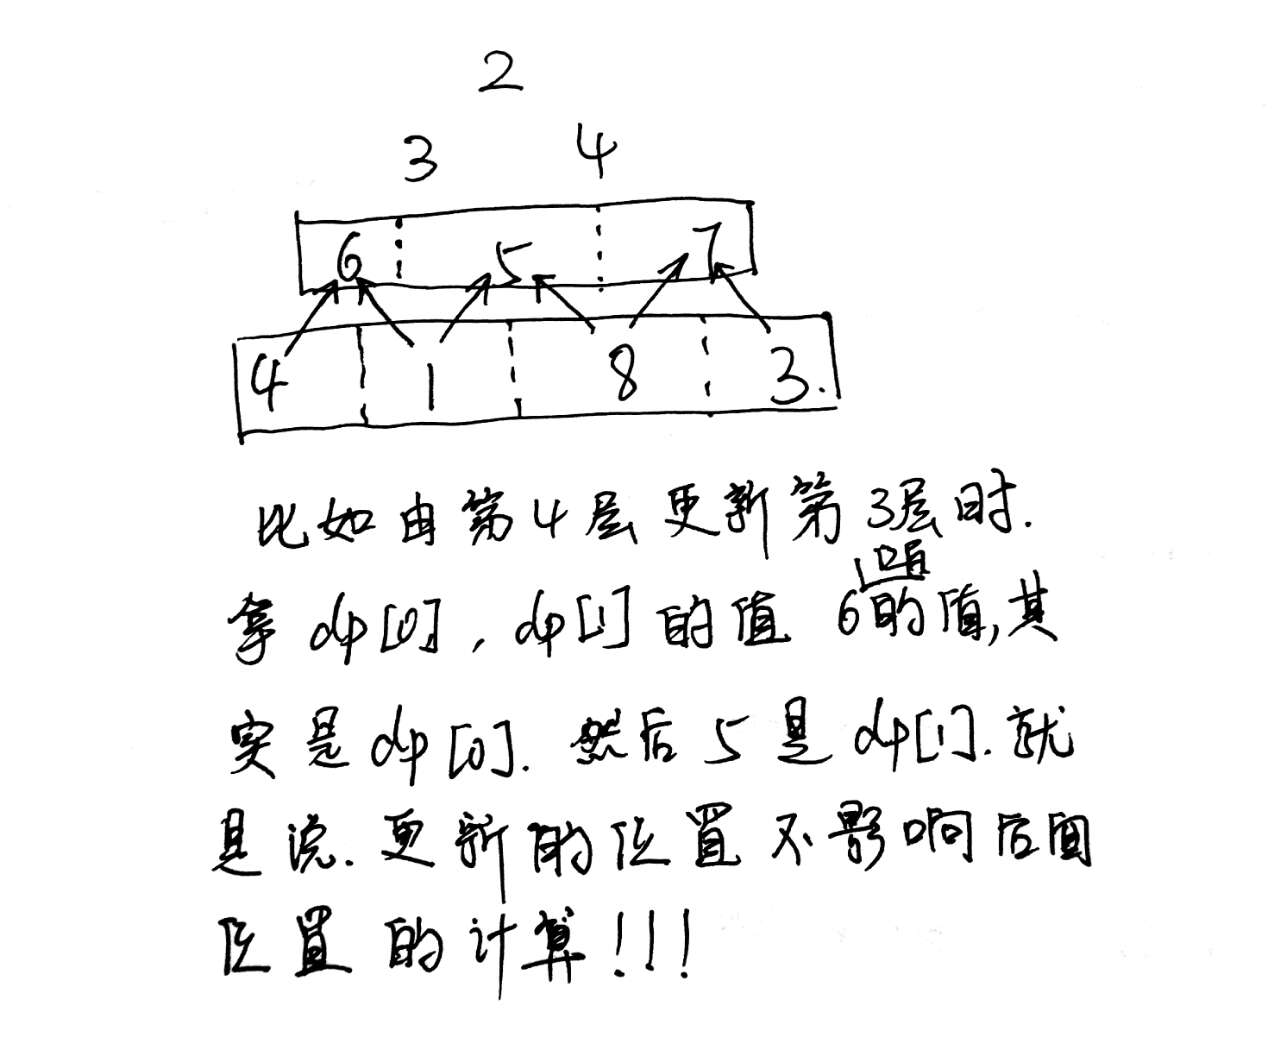 2
3 4
6 5 7
4 1 8 3.
比如由第4层更新第3层时.
拿dp[0], dp[1]的值 6的值,其
实是dp[0]. 然后5是dp[1]. 就
是说. 更新的位置不影响后面
位置的计算!!!